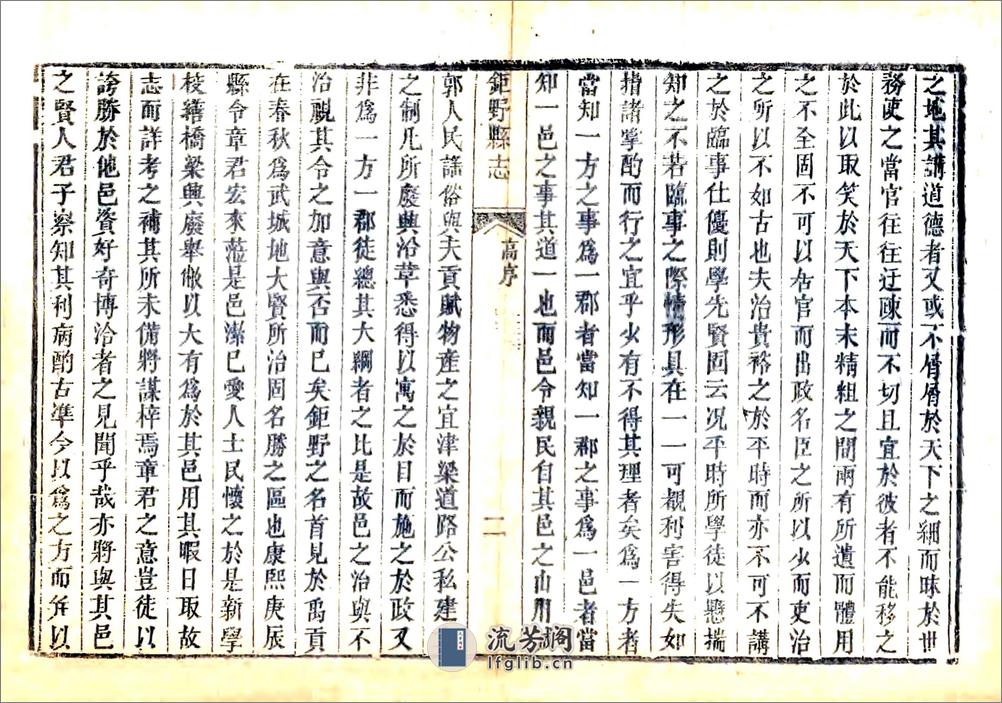 之地其講道德者又或不屑屑於天下之細而昧於世
務使之當官往往迂疎而不切且宜於彼者不能移之
於此以取笑於天下本末精粗之間兩有所遺而體用
之不全固不可以居官而出政名臣之所以少而吏治
之所以不如古也夫治貴裕之於平時而亦不可不講
之於臨事仕優則學先賢固云况平時所學徒以懸揣
知之不若臨事之際情形具在一一可覩利害得失如
指諸掌酌而行之宜乎少有不得其理者矣為一方者
當知一方之事為一郡者當知一郡之事為一邑者當
知一邑之事其道一也而邑令親民自其邑之山川
鉅野縣志
高序
二
郭人民謡俗與夫貢賦物産之宜津梁道路公私建
之制凡所廢興沿革悉得以寓之於目而施之於政又
非為一方一郡徒總其大綱者之比是故邑之治與不
治視其令之加意與否而已矣鉅野之名首見於禹貢
在春秋為武城地大賢所治固名勝之區也康熙庚辰
縣令章君宏來蒞是邑潔已愛人士民懷之於是新學
校繕橋梁興廢舉墜以大有為於其邑用其暇日取故
志而詳考之補其所未備將謀梓焉章君之意豈徒以
誇勝於他邑資好奇博洽者之見聞乎哉亦將與其邑
之賢人君子察知其利病酌古準今以為之方而無以
流芳閣
lfglib.cn